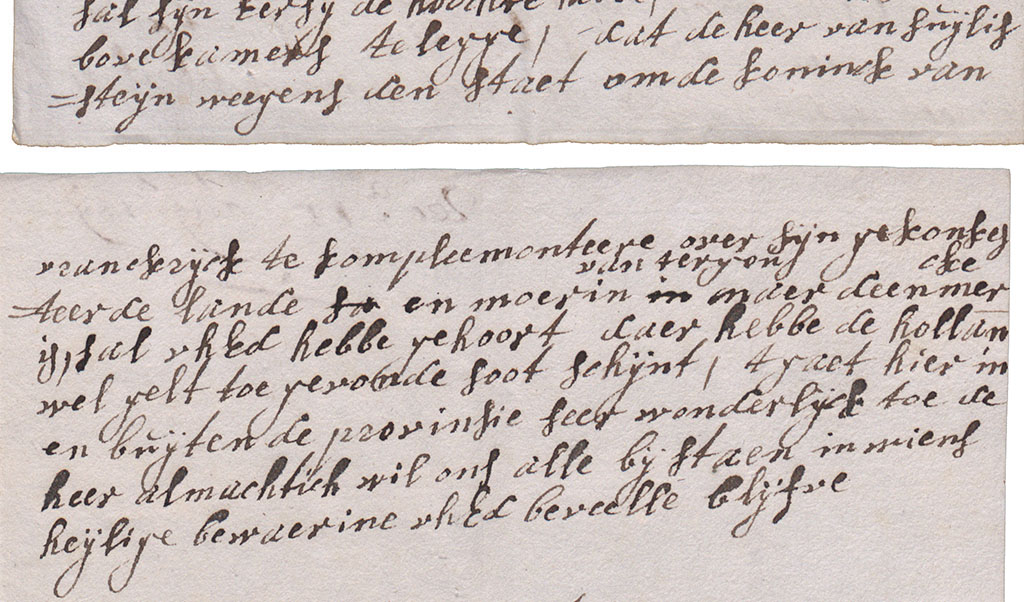 sal sijn tersy de
bovekamers te legge, dat de heer van suijlis
=steijn weegens den staet om de koninck van
vranckrijck te kompleemonteere over sijn gekonkes
=teerde lande en moer in van tergous in maer deen mer che
is, sal vhEd hebbe gehoort daer hebbe de hollan
wel gelt toe gevonde soot schijnt, t gaet hier in
en buijten de provinsie seer wonderlijck toe de
heer almachtich wil ons alle bij staen in wiens
heijlige bewaerine vhEd beveelle blijfve